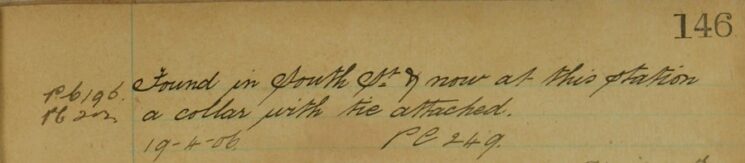 146
PC 196. Found in South St & now at this station
PC 202 a collar with tie attached.
19-4-06 PC 249.